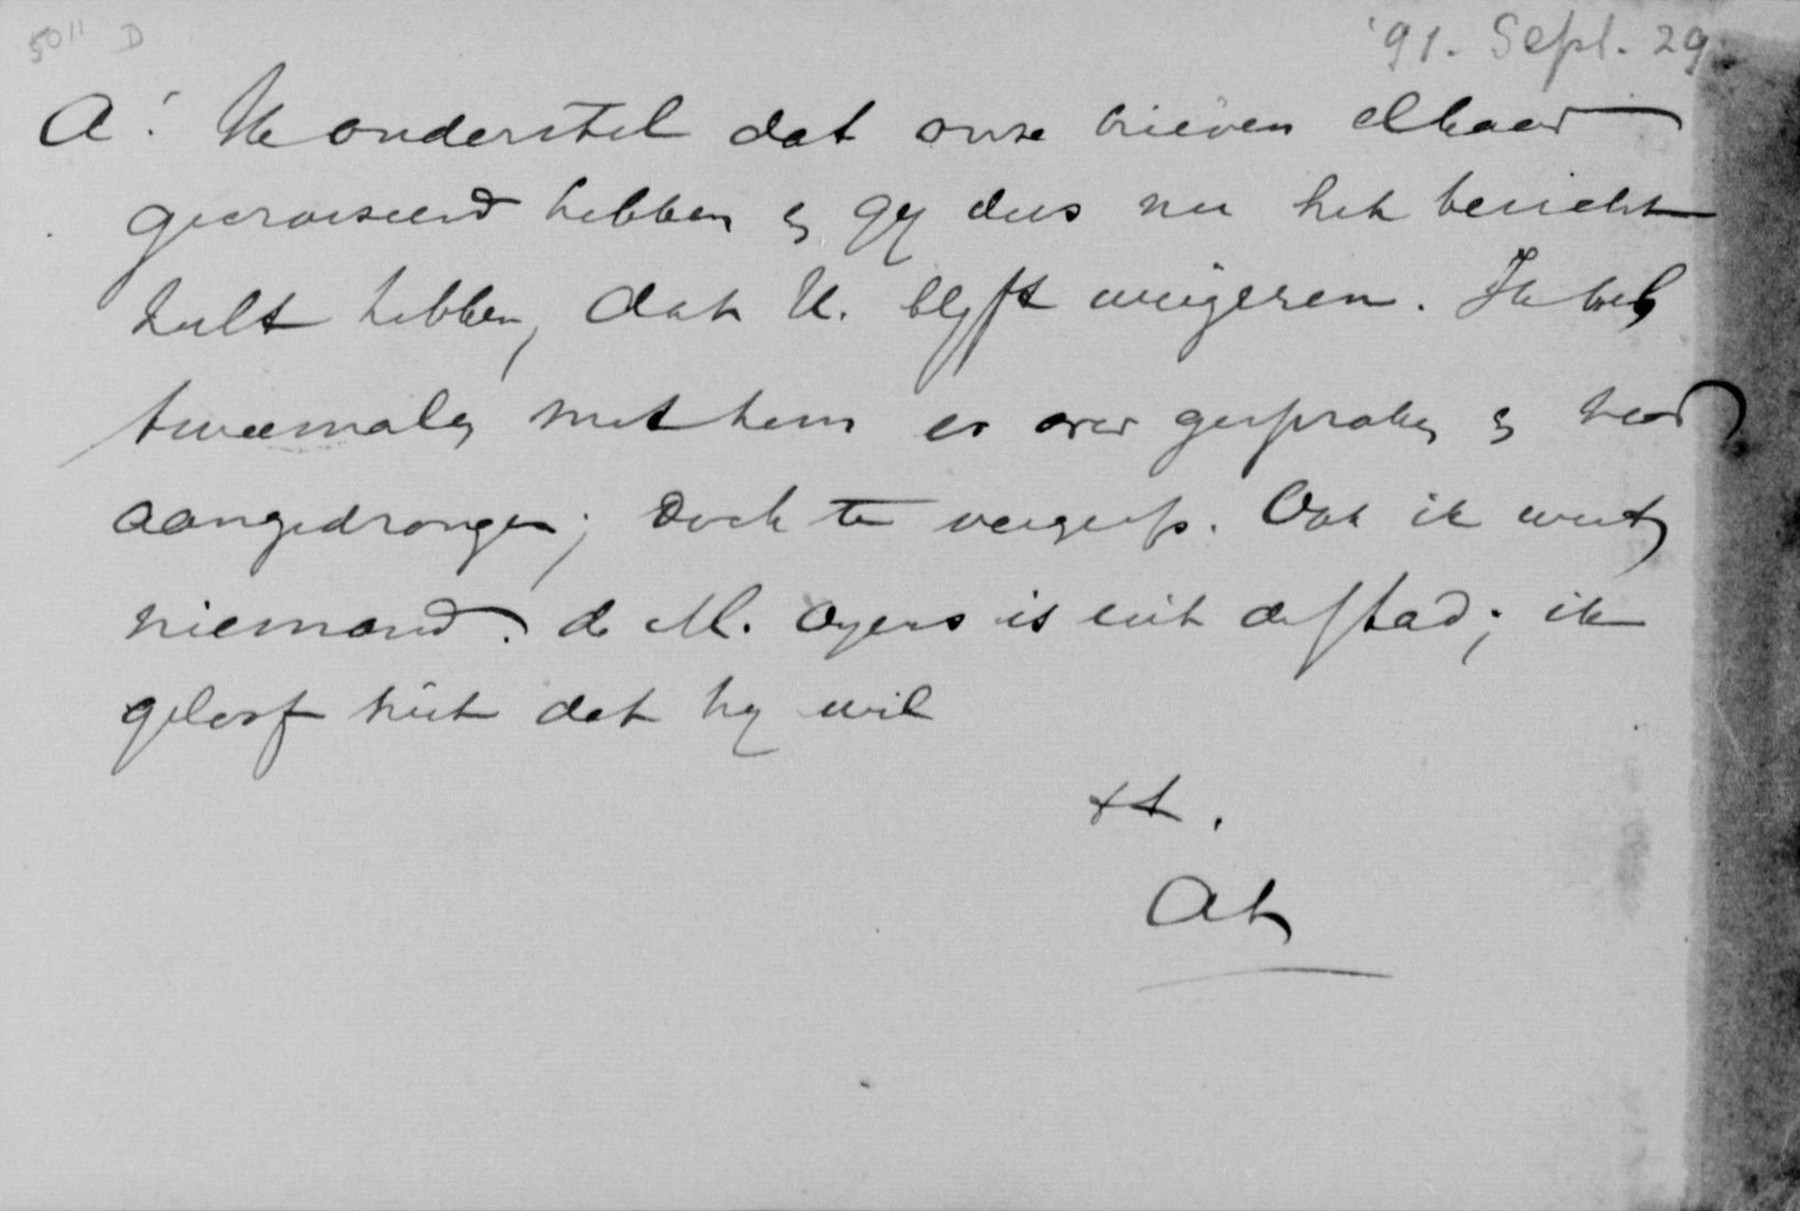 5011 D
'91. Sept. 29.
A! Ik onderstel dat onze brieven elkaar
gecroiseerd hebben en gij dus nu het bericht
hult hebben, dat K. blijft weigeren. Ik heb
tweemalen met hem er over gesproken en
aangedrongen; doch te vergeefs. Ook ik weet
niemand. de M. Oyens is uit de stad; ik
geloof niet dat hij wil
tt.